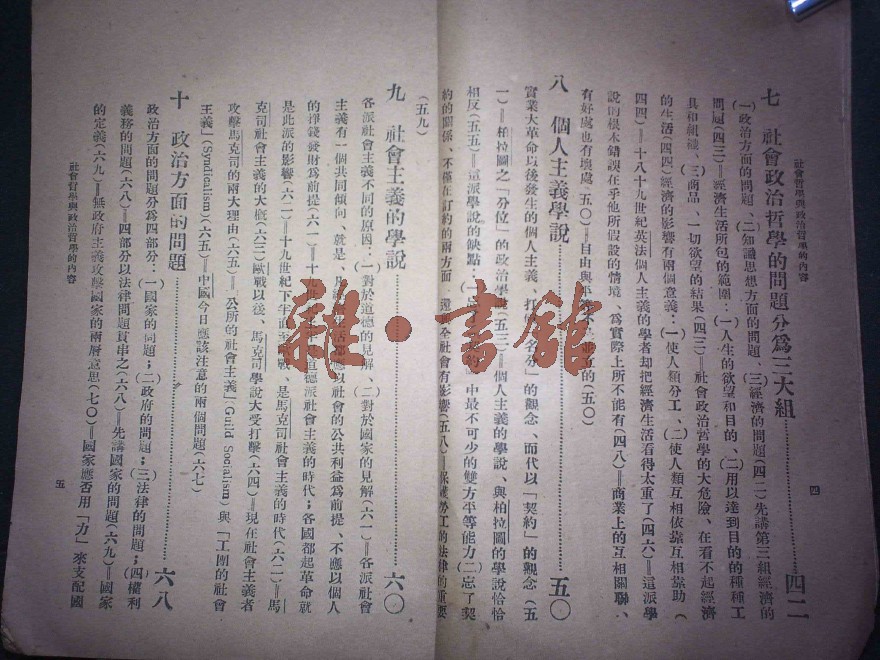 社會哲學與政治哲學的內容
四
七 社會政治哲學的問題分爲三大組……四二
(一)政治方面的問題、(二)知識思想方面的問題、(三)經濟的問題(四二)先講第三組經濟的
問題(四三)═經濟生活所包的範圍:(一)人生的欲望和目的、(二)用以達到目的的種種工
具和組織、(三)商品、一切欲望的結果(四三)═社會政治哲學的大危險、在看不起經濟
的生活(四四)經濟的影響有兩個意義:(一)使人類分工、(二)使人類互相依靠互相幫助(
四四)═十八十九世紀英法個人主義的學者却把經濟生活看得太重了(四六)═這派學
說的根本錯誤在乎他所假設的情境、爲實際上所不能有(四八)═商業上的互相關聯、
有好處也有壞處(五〇)═自由與平 立的(五〇)
八 個人主義學說……五〇
實業大革命以後發生的個人主義、打 「名分」的觀念、而代以「契約」的觀念(五
一)═柏拉圖之「分位」的政治學 (五三)═個人主義的學說、與柏拉圖的學說恰恰
相反(五五)═這派學說的缺點:(一) 約 中最不可少的雙方平等能力(二)忘了契
約的關係、不僅在訂約的兩方面、還 全社會有影響(五八)═保護勞工的法律的重要
(五九)
九 社會主義的學說……六〇
各派社會主義不同的原因:(一)對於道德的見解、(二)對於國家的見解(六一)═各派社會
主義有一個共同傾向、就是、 生活都應以社會的公共利益爲前提、不應以個人
的掙錢發財爲前提(六一)═十九世 道德派社會主義的時代;各國都起革命就
是此派的影響(六二)═十九世紀下半 戰、是馬克司社會主義的時代(六二)═馬
克司社會主義的大槪(六三)歐戰以後、馬克司學說大受打擊(六四)═現在社會主義者
攻擊馬克司的兩大理由(六五)═「公所的社會主義」(Guild Socialism)與「工團的社會
主義」(Syndicalism)(六五)═中國今日應該注意的兩個問題(六七)
十 政治方面的問題……六八
政治方面的問題分爲四部分:(一)國家的問題;(二)政府的問題;(三)法律的問題;(四)權利
義務的問題(六八)═四部分以法律問題貫串之(六八)═先講國家的問題(六九)═國家
的定義(六九)═無政府主義攻擊國家的兩層意思(七〇)═國家應否用「力」來支配國
社會哲學與政治哲學的內容
五
雜·書館